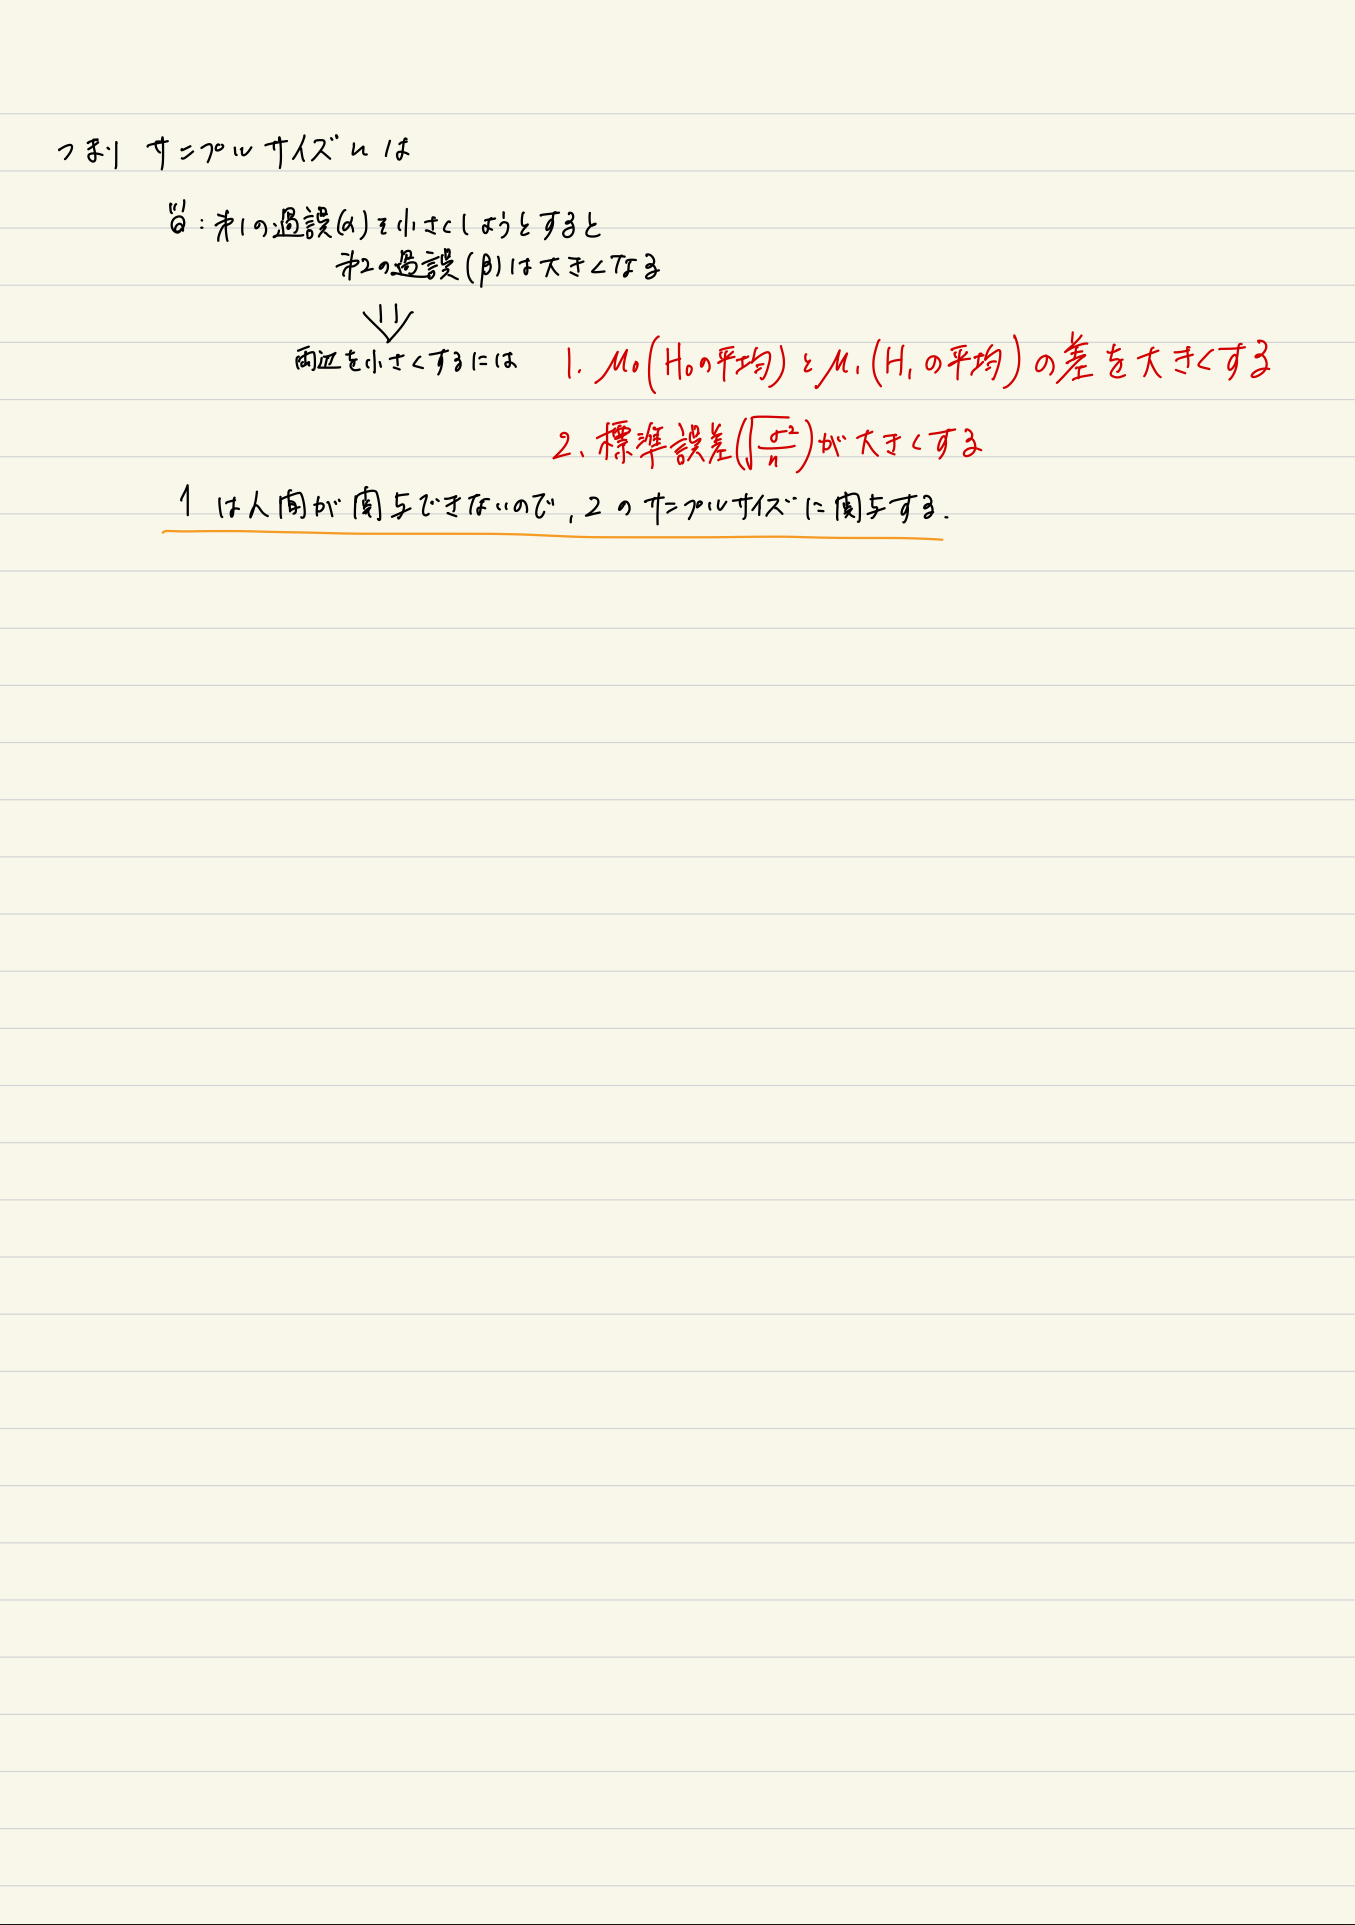 つまり サンプルサイズ n は
: 第1の過誤(α)を小さくしようとすると
第2の過誤(β)は大きくなる
両辺を小さくするには
1. μ₀(H₀の平均)とμ₁(H₁の平均)の差を大きくする
2. 標準誤差(√σ²/n)が大きくする
1 は人間が関与できないので, 2 のサンプルサイズに関与する.